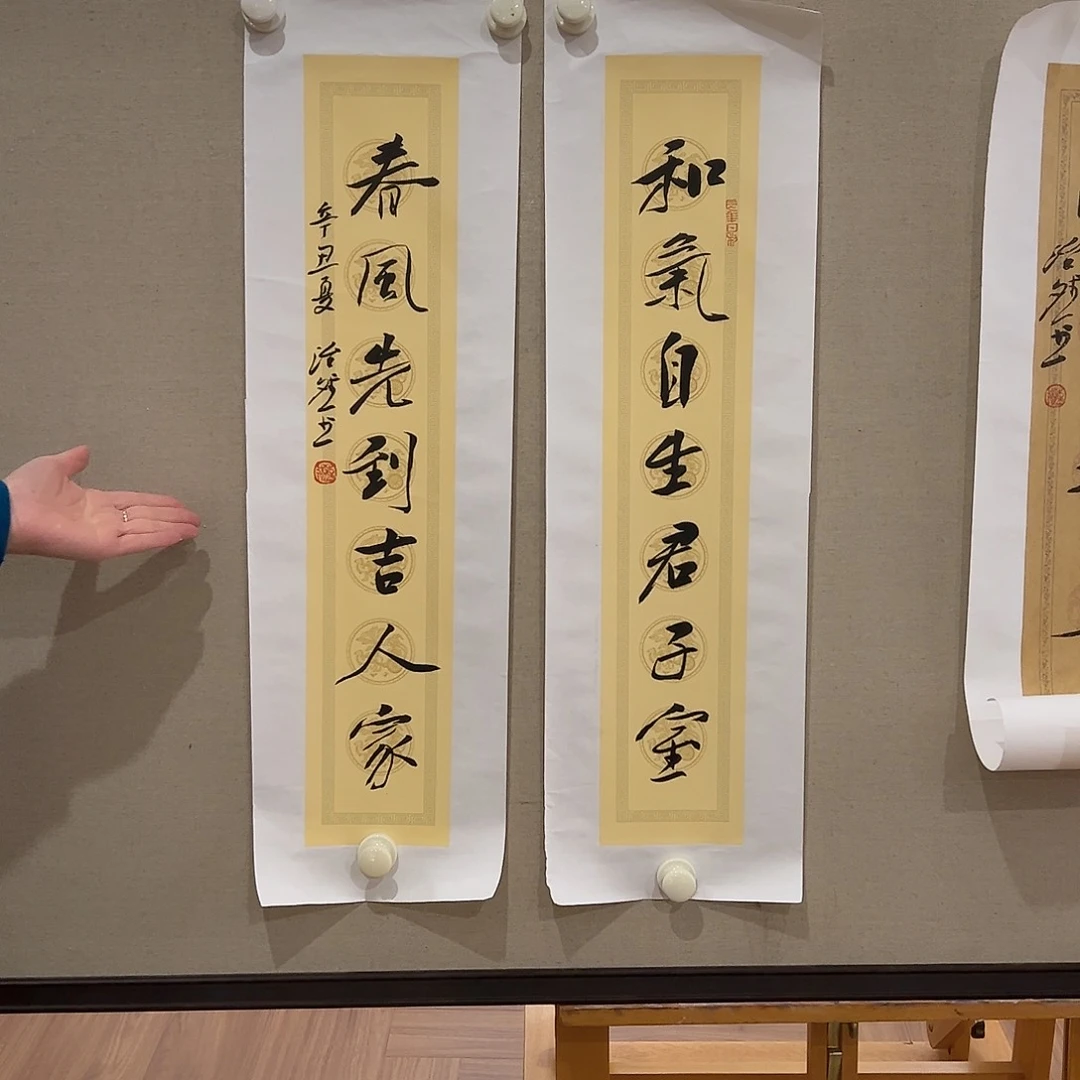 和氣自生君子室
春風先到吉人家
辛丑夏 浩然书
浩然书